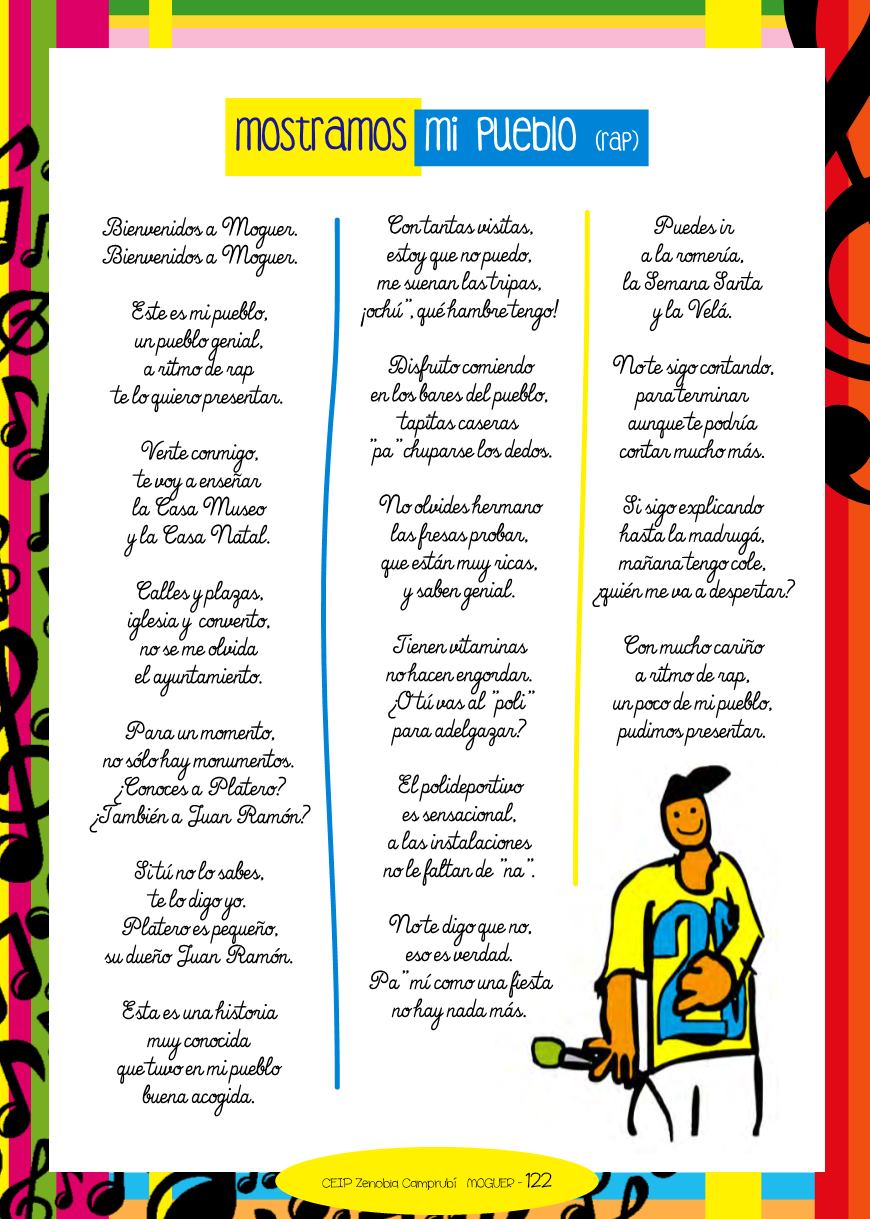 mostramos mi pueblo (rap)
Bienvenidos a Moguer.
Bienvenidos a Moguer.
Este es mi pueblo,
un pueblo genial,
a ritmo de rap
te lo quiero presentar.
Vente conmigo,
te voy a enseñar
la Casa Museo
y la Casa Natal.
Calles y plazas,
iglesia y convento,
no se me olvida
el ayuntamiento.
Para un momento,
no sólo hay monumentos.
¿Conoces a Platero?
¿También a Juan Ramón?
Si tú no lo sabes,
te lo digo yo.
Platero es pequeño,
su dueño Juan Ramón.
Esta es una historia
muy conocida
que tuvo en mi pueblo
buena acogida.
Con tantas visitas,
estoy que no puedo,
me suenan las tripas,
¡ochú", qué hambre tengo!
Disfruto comiendo
en los bares del pueblo,
tapitas caseras
"pa" chuparse los dedos.
No olvides hermano
las fresas probar,
que están muy ricas,
y saben genial.
Tienen vitaminas
no hacen engordar.
¿O tú vas al "poli"
para adelgazar?
El polideportivo
es sensacional,
a las instalaciones
no le faltan de "na".
No te digo que no,
eso es verdad.
Pa" mí como una fiesta
no hay nada más.
Puedes ir
a la romería,
la Semana Santa
y la Velá.
No te sigo contando,
para terminar
aunque te podría
contar mucho más.
Si sigo explicando
hasta la madrugá,
mañana tengo cole,
¿quién me va a despertar?
Con mucho cariño
a ritmo de rap,
un poco de mi pueblo,
pudimos presentar.
25
CEIP Zenobia Camprubí MOGUER - 122